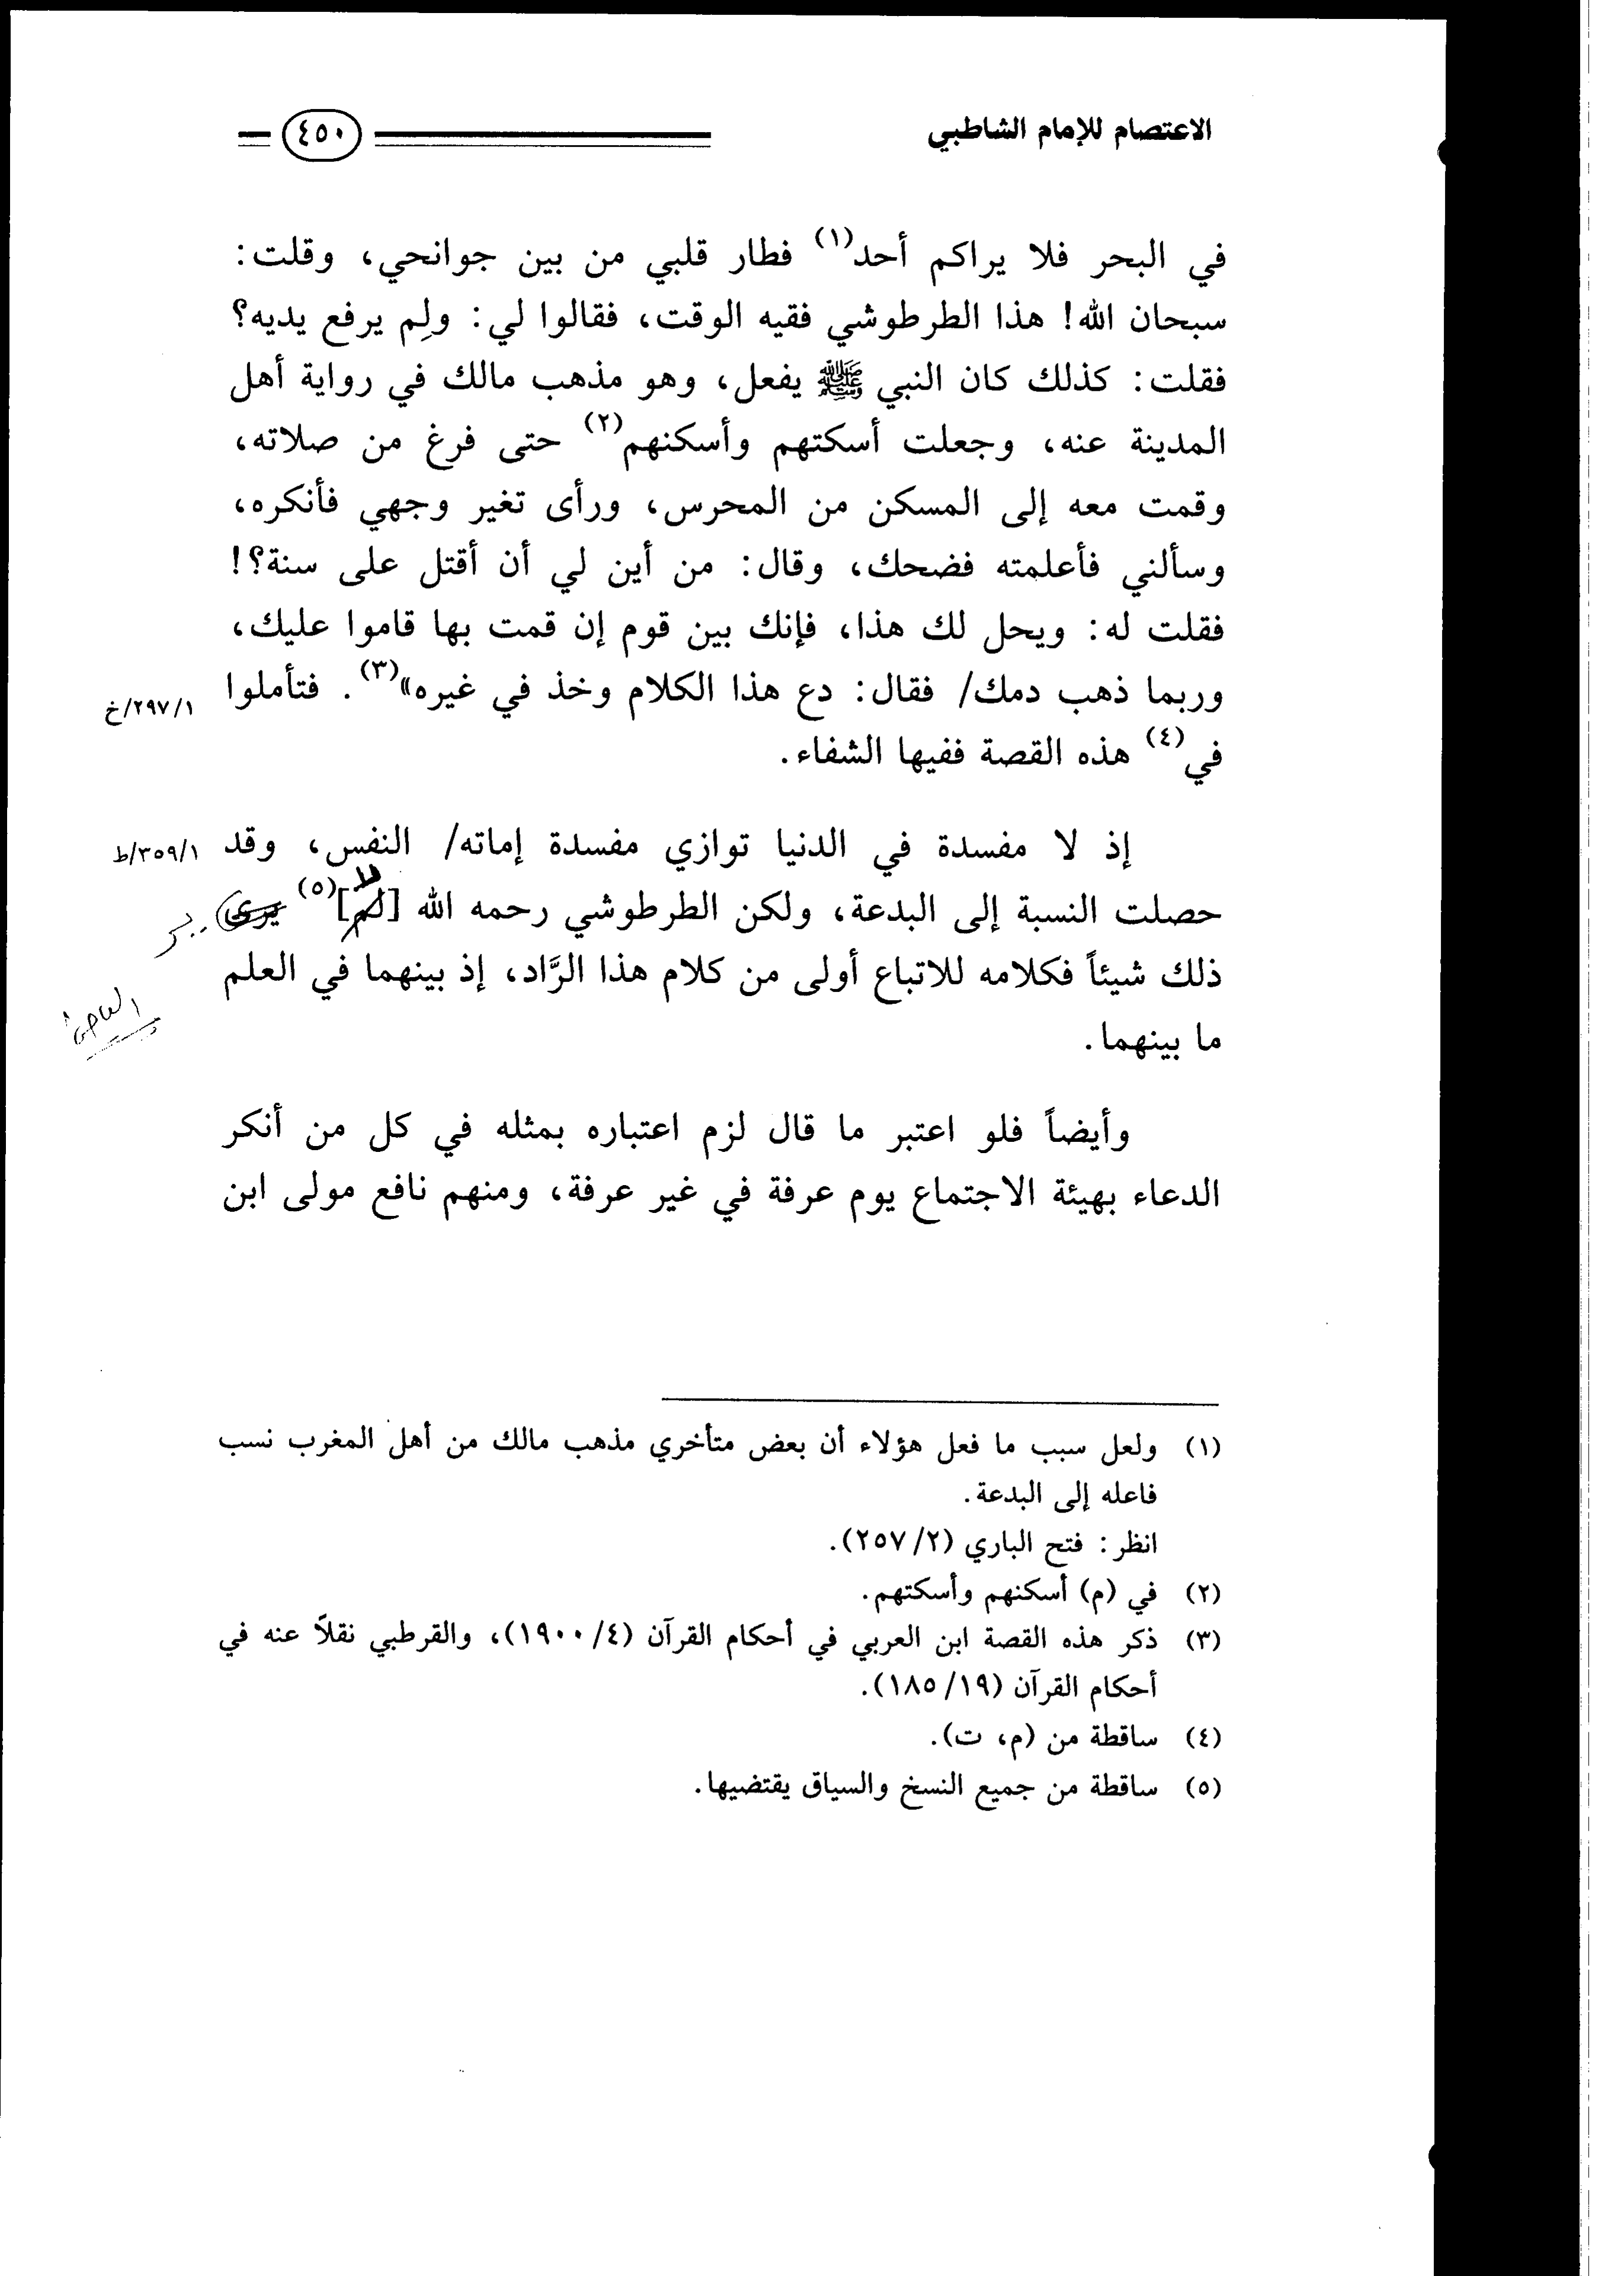 الاعتصام للإمام الشاطبي
٤٥٠
في البحر فلا يراكم أحد(١) فطار قلبي من بين جوانحي، وقلت:
سبحان الله! هذا الطرطوشي فقيه الوقت، فقالوا لي: ولِم يرفع يديه؟
فقلت: كذلك كان النبي ﷺ يفعل، وهو مذهب مالك في رواية أهل
المدينة عنه، وجعلت أسكتهم وأسكنهم(٢) حتى فرغ من صلاته،
وقمت معه إلى المسكن من المحرس، ورأى تغير وجهي فأنكره،
وسألني فأعلمته فضحك، وقال: من أين لي أن أقتل على سنة؟!
فقلت له: ويحل لك هذا، فإنك بين قوم إن قمت بها قاموا عليك،
وربما ذهب دمك/ فقال: دع هذا الكلام وخذ في غيره»(٣). فتأملوا
٢٩٧/١/خ
في(٤) هذه القصة ففيها الشفاء.
إذ لا مفسدة في الدنيا توازي مفسدة إماته/ النفس، وقد
٣٥٩/١/ط
حصلت النسبة إلى البدعة، ولكن الطرطوشي رحمه الله [لم](٥) يرى
ذلك شيئاً فكلامه للاتباع أولى من كلام هذا الرَّاد، إذ بينهما في العلم
ما بينهما.
وأيضاً فلو اعتبر ما قال لزم اعتباره بمثله في كل من أنكر
الدعاء بهيئة الاجتماع يوم عرفة في غير عرفة، ومنهم نافع مولى ابن
(١) ولعل سبب ما فعل هؤلاء أن بعض متأخري مذهب مالك من أهل المغرب نسب
فاعله إلى البدعة.
انظر: فتح الباري (٢/٢٥٧).
(٢) في (م) أسكنهم وأسكتهم.
(٣) ذكر هذه القصة ابن العربي في أحكام القرآن (٤/١٩٠٠)، والقرطبي نقلاً عنه في
أحكام القرآن (١٩/١٨٥).
(٤) ساقطة من (م، ت).
(٥) ساقطة من جميع النسخ والسياق يقتضيها.